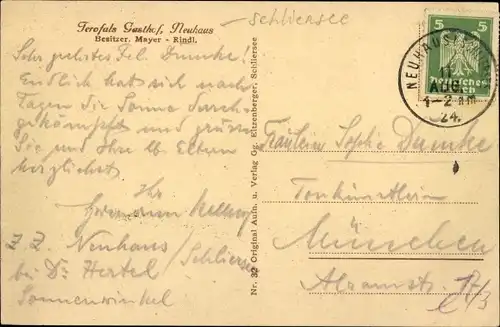 Terofals Gasthof, Neuhaus
Besitzer, Mayer - Rindl.
- Schliersee
Sehr geehrtes Frl. Dumcke!
Endlich hat sich nach
Tagen die Sonne durch-
gekämpft und grüsse
Sie und Ihre lb. Eltern
herzlichst
Ihr
Hermann
z. Z. Neuhaus / Schliersee
bei Dr. Hertel
Sonnenwinkel
Nr. 32 Original Aufn. u. Verlag Gg. Eitzenberger, Schliersee
5 5
Deutsches Reich
NEUHAUS
AUG.
4-2 NM
24.
Fräulein Sophie Dumcke
Tonkünstlerin
München